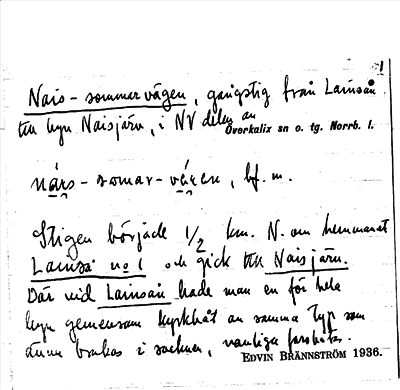 Nais-sommarvägen, gångstig från Lainsån
till byn Naisjärv, i NV delen av
Överkalix sn o. tg. Norrb. l.
-somar- , bf. m.
Stigen började 1/2 km. N. om hemmanet
Lainså no 1 och gick till Naisjärv.
Där vid Lainsån hade man en för hela
byn gemensam kyrkbåt av samma typ som
ännu brukas i socknen, vanliga forsbåtar.
EDVIN BRÄNNSTRÖM 1936.